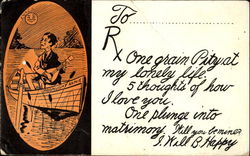 To
Rx One grain Pity at
my lonely life
5 thoughts of how
I love you.
One plunge into
matrimony. Will you be mine?
I. Will B. Happy